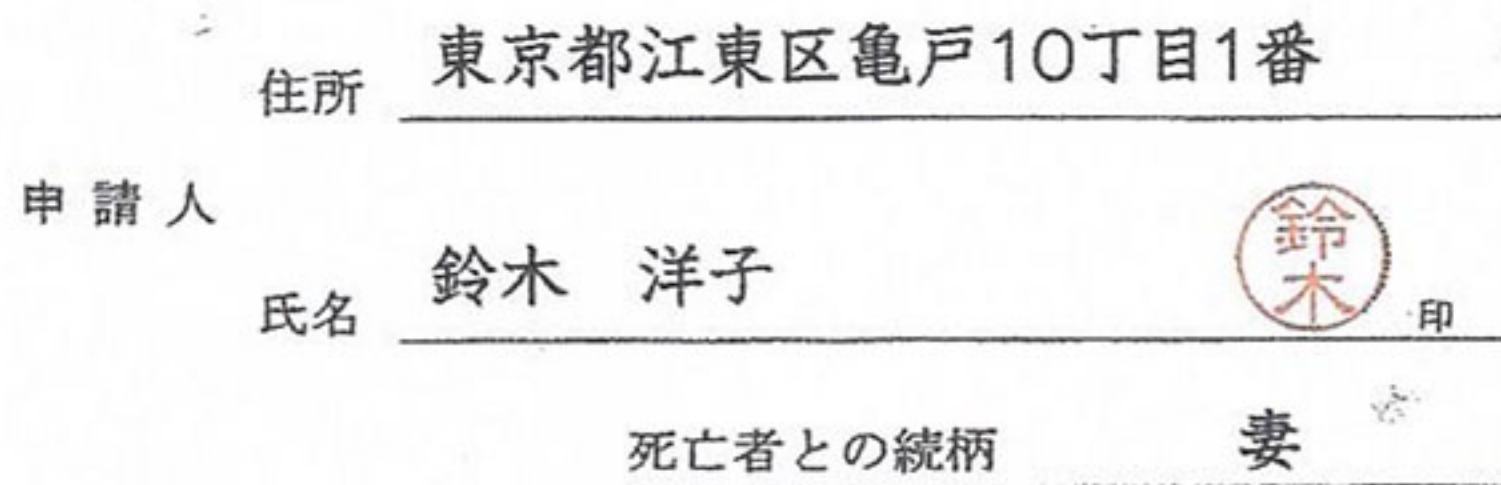 住所 東京都江東区亀戸10丁目1番
申請人
氏名 鈴木 洋子 鈴木 印
死亡者との続柄 妻